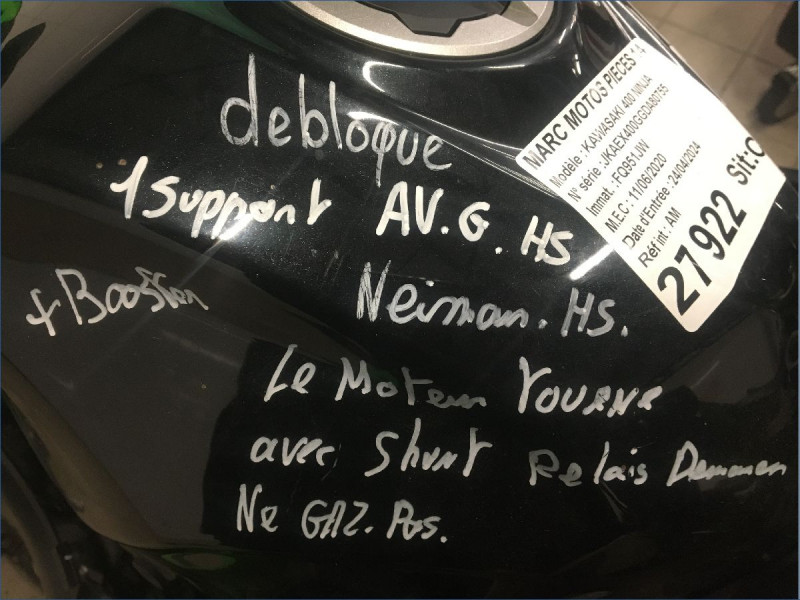 debloque
1 Support AV.G. HS
+ Booster
Neiman. HS.
Le Moteur Tourne
avec Shunt Relais Demarren
Ne GAZ. Pas.
MARC MOTOS PIECES 14
Modèle : KAWASAKI 400 NINJA
N° série : JKAEX400GGDA80755
Immat. : FQ951JW
M.E.C : 11/06/2020
Date d'Entrée : 24/04/2024
Réf int : AM
27 922 Sit:C